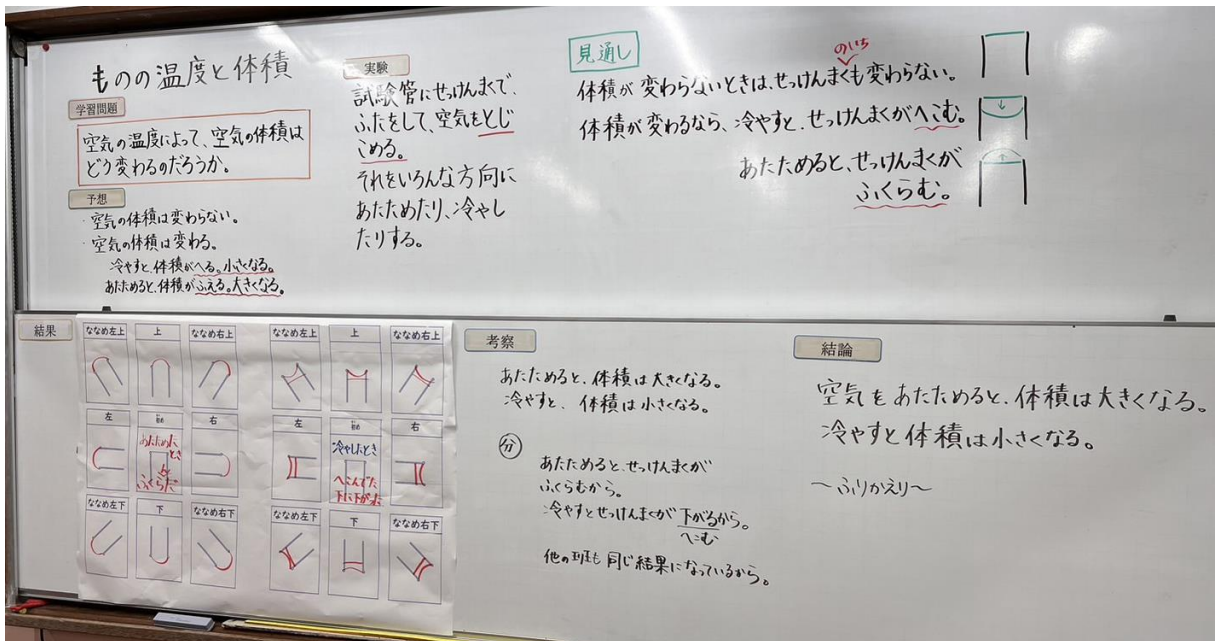 ものの温度と体積
学習問題
空気の温度によって、空気の体積は
どう変わるのだろうか。
予想
・空気の体積は変わらない。
・空気の体積は変わる。
冷やすと、体積がへる。小さくなる。
あたためると、体積がふえる。大きくなる。
実験
試験管にせっけんまくで、
ふたをして、空気をとじ
こめる。
それをいろんな方向に
あたためたり、冷やし
たりする。
見通し
のいち
体積が変わらないときは、せっけんまくも変わらない。
体積が変わるなら、冷やすと、せっけんまくがへこむ。
あたためると、せっけんまくが
ふくらむ。
結果
ななめ左上 上 ななめ右上
左 右
あたためた
とき
ふくらんだ
ななめ左下 下 ななめ右下
ななめ左上 上 ななめ右上
左 右
冷やしたとき
へこんでた
下に下がった
ななめ左下 下 ななめ右下
考察
あたためると、体積は大きくなる。
冷やすと、体積は小さくなる。
分
あたためると、せっけんまくが
ふくらむから。
冷やすとせっけんまくが下がるから。
へこむ
他の班も同じ結果になっているから。
結論
空気をあたためると、体積は大きくなる。
冷やすと体積は小さくなる。
～ふりかえり～